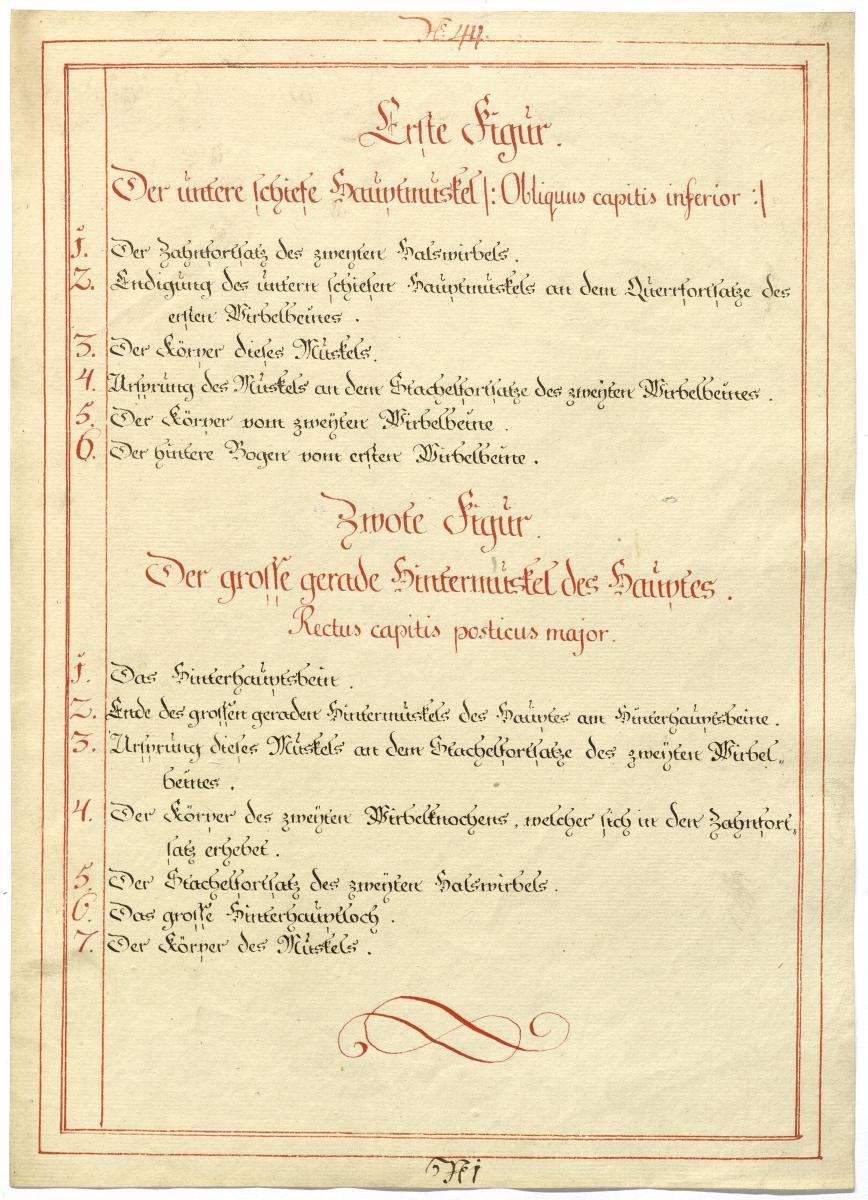 No: 44.
Erste Figur.
Der untere schiefe Hauptmuskel |: Obliquus capitis inferior :|
1. Der Zahnfortsatz des zweyten Halswirbels.
2. Endigung des untern schiefen Hauptmuskels an dem Querrfortsatze des
ersten Wirbelbeines.
3. Der Körper dieses Muskels.
4. Ursprung des Muskels an dem Stachelfortsatze des zweyten Wirbelbeines.
5. Der Körper vom zweyten Wirbelbeine.
6. Der hintere Bogen vom ersten Wirbelbeine.
Zwote Figur.
Der grosse gerade Hintermuskel des Hauptes.
Rectus capitis posticus major.
1. Das Hinterhauptsbein.
2. Ende des grossen geraden Hintermuskels des Hauptes am Hinterhauptsbeine.
3. Ursprung dieses Muskels an dem Stachelfortsatze des zweyten Wirbel„
beines.
4. Der Körper des zweyten Wirbelknochens, welcher sich in den Zahnfort„
satz erhebet.
5. Der Stachelfortsatz des zweyten Halswirbels.
6. Das grosse Hinterhauptloch.
7. Der Körper des Muskels.